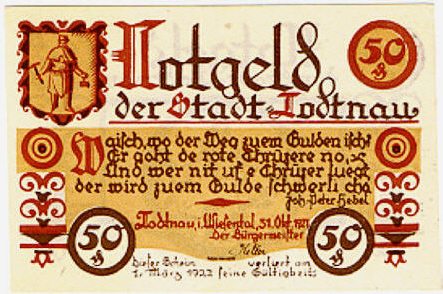 Notgeld
50
₰
der Stadt Todtnau
Waisch, wo der Weg zuem Gulden isch?
Er goht de rote Chrüzere no,
Und, wer nit uf e Chrüzer luegt
der wird zuem Gulde schwerli cho
Joh. Peter Hebel
Todtnau, i. Wiesental, 31. Okt. 1921
Der Bürgermeister
50
₰
50
₰
Dieser Schein verliert am
1. März 1922 seine Gültigkeit